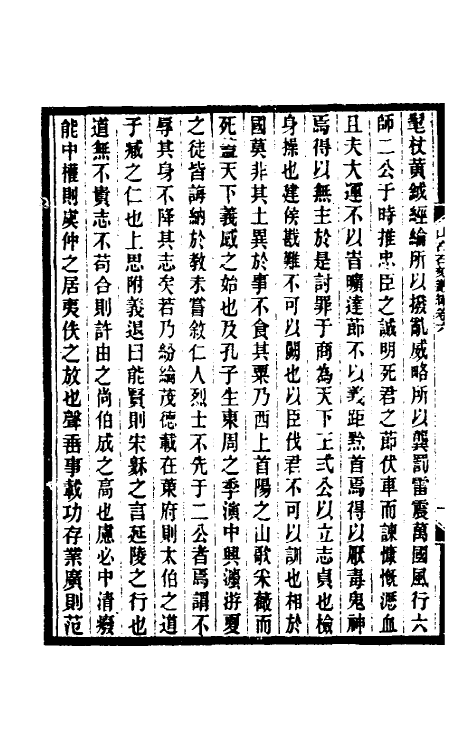 聖杖黃鉞經綸所以撥亂威略所以龔罰雷震萬國風行六
師二公于時推忠臣之誠明死君之節伏車而諫慷慨瀝血
且夫大運不以昔曠達節不以義距黔首焉得以厭毒鬼神
焉得以無主於是討罪于商為天下王式公以立志貞也檢
身操也建侯戡難不可以闕也以臣伐君不可以訓也相於
國莫非其土異於事不食其粟乃西上首陽之山歌采薇而
死蓋天下義感之始也及孔子生東周之季演中興瀍游夏
之徒皆誨納於教未嘗敘仁人烈士不先于二公者焉謂不
辱其身不降其志矣若乃紛綸茂德載在策府則太伯之道
子臧之仁也上思附義退曰能賢則宋穌之言延陵之行也
道無不貴志不苟合則許由之尚伯成之高也慮必中清癈
能中權則虞仲之居夷佚之放也聲垂事載功存業廣則范
山右石刻叢編卷六